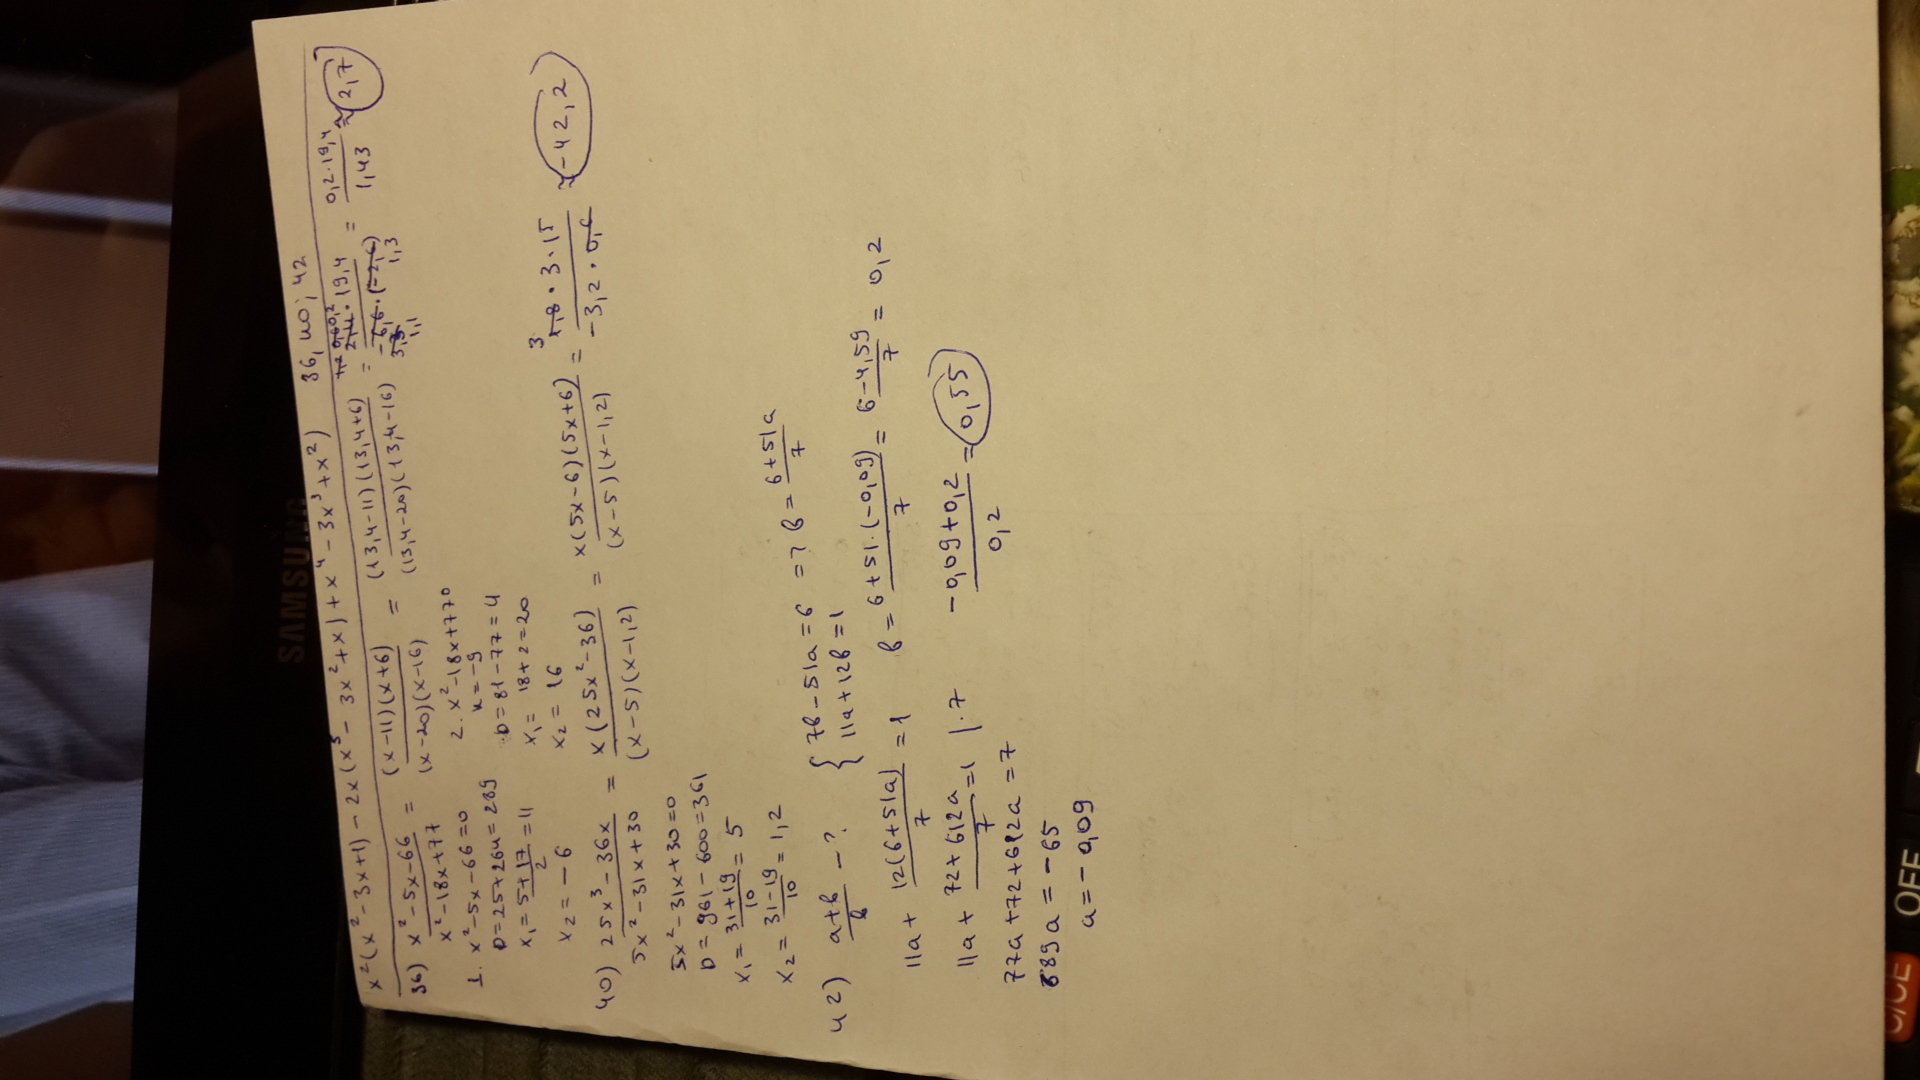 SAMSUNG
x²(x²-3x+1)-2x(x³-3x²+x)+x⁴-3x³+x²) 36, 40, 42
36) x²-5x-66 / x²-18x+77 = (x-11)(x+6) / (x-20)(x-16) = (13,4-11)(13,4+6) / (13,4-20)(13,4-16) = 2,4·19,4 / -6,6·(-2,6) = 0,2·19,4 / 1,43 ≈ 2,7
1. x²-5x-66=0
D=25+264=289
x₁=5+17/2=11
x₂=-6
2. x²-18x+770
k=-9
D=81-77=4
x₁=18+2=20
x₂=16
40) 25x³-36x / 5x²-31x+30 = x(25x²-36) / (x-5)(x-1,2) = x(5x-6)(5x+6) / (x-5)(x-1,2) = 1,8·3·15 / -3,2·0,6 ≈ -42,2
5x²-31x+30=0
D=961-600=361
x₁=31+19/10=5
x₂=31-19/10=1,2
42) a+b/b -? { 7b-51a=6 => b=6+51a/7
11a+12b=1
11a+12(6+51a)/7=1 b=6+51·(-0,09)/7=6-4,59/7=0,2
11a+72+612a/7=1 |·7 -0,09+0,2/0,2=0,55
77a+72+612a=7
689a=-65
a=-0,09
C/CE
OFF